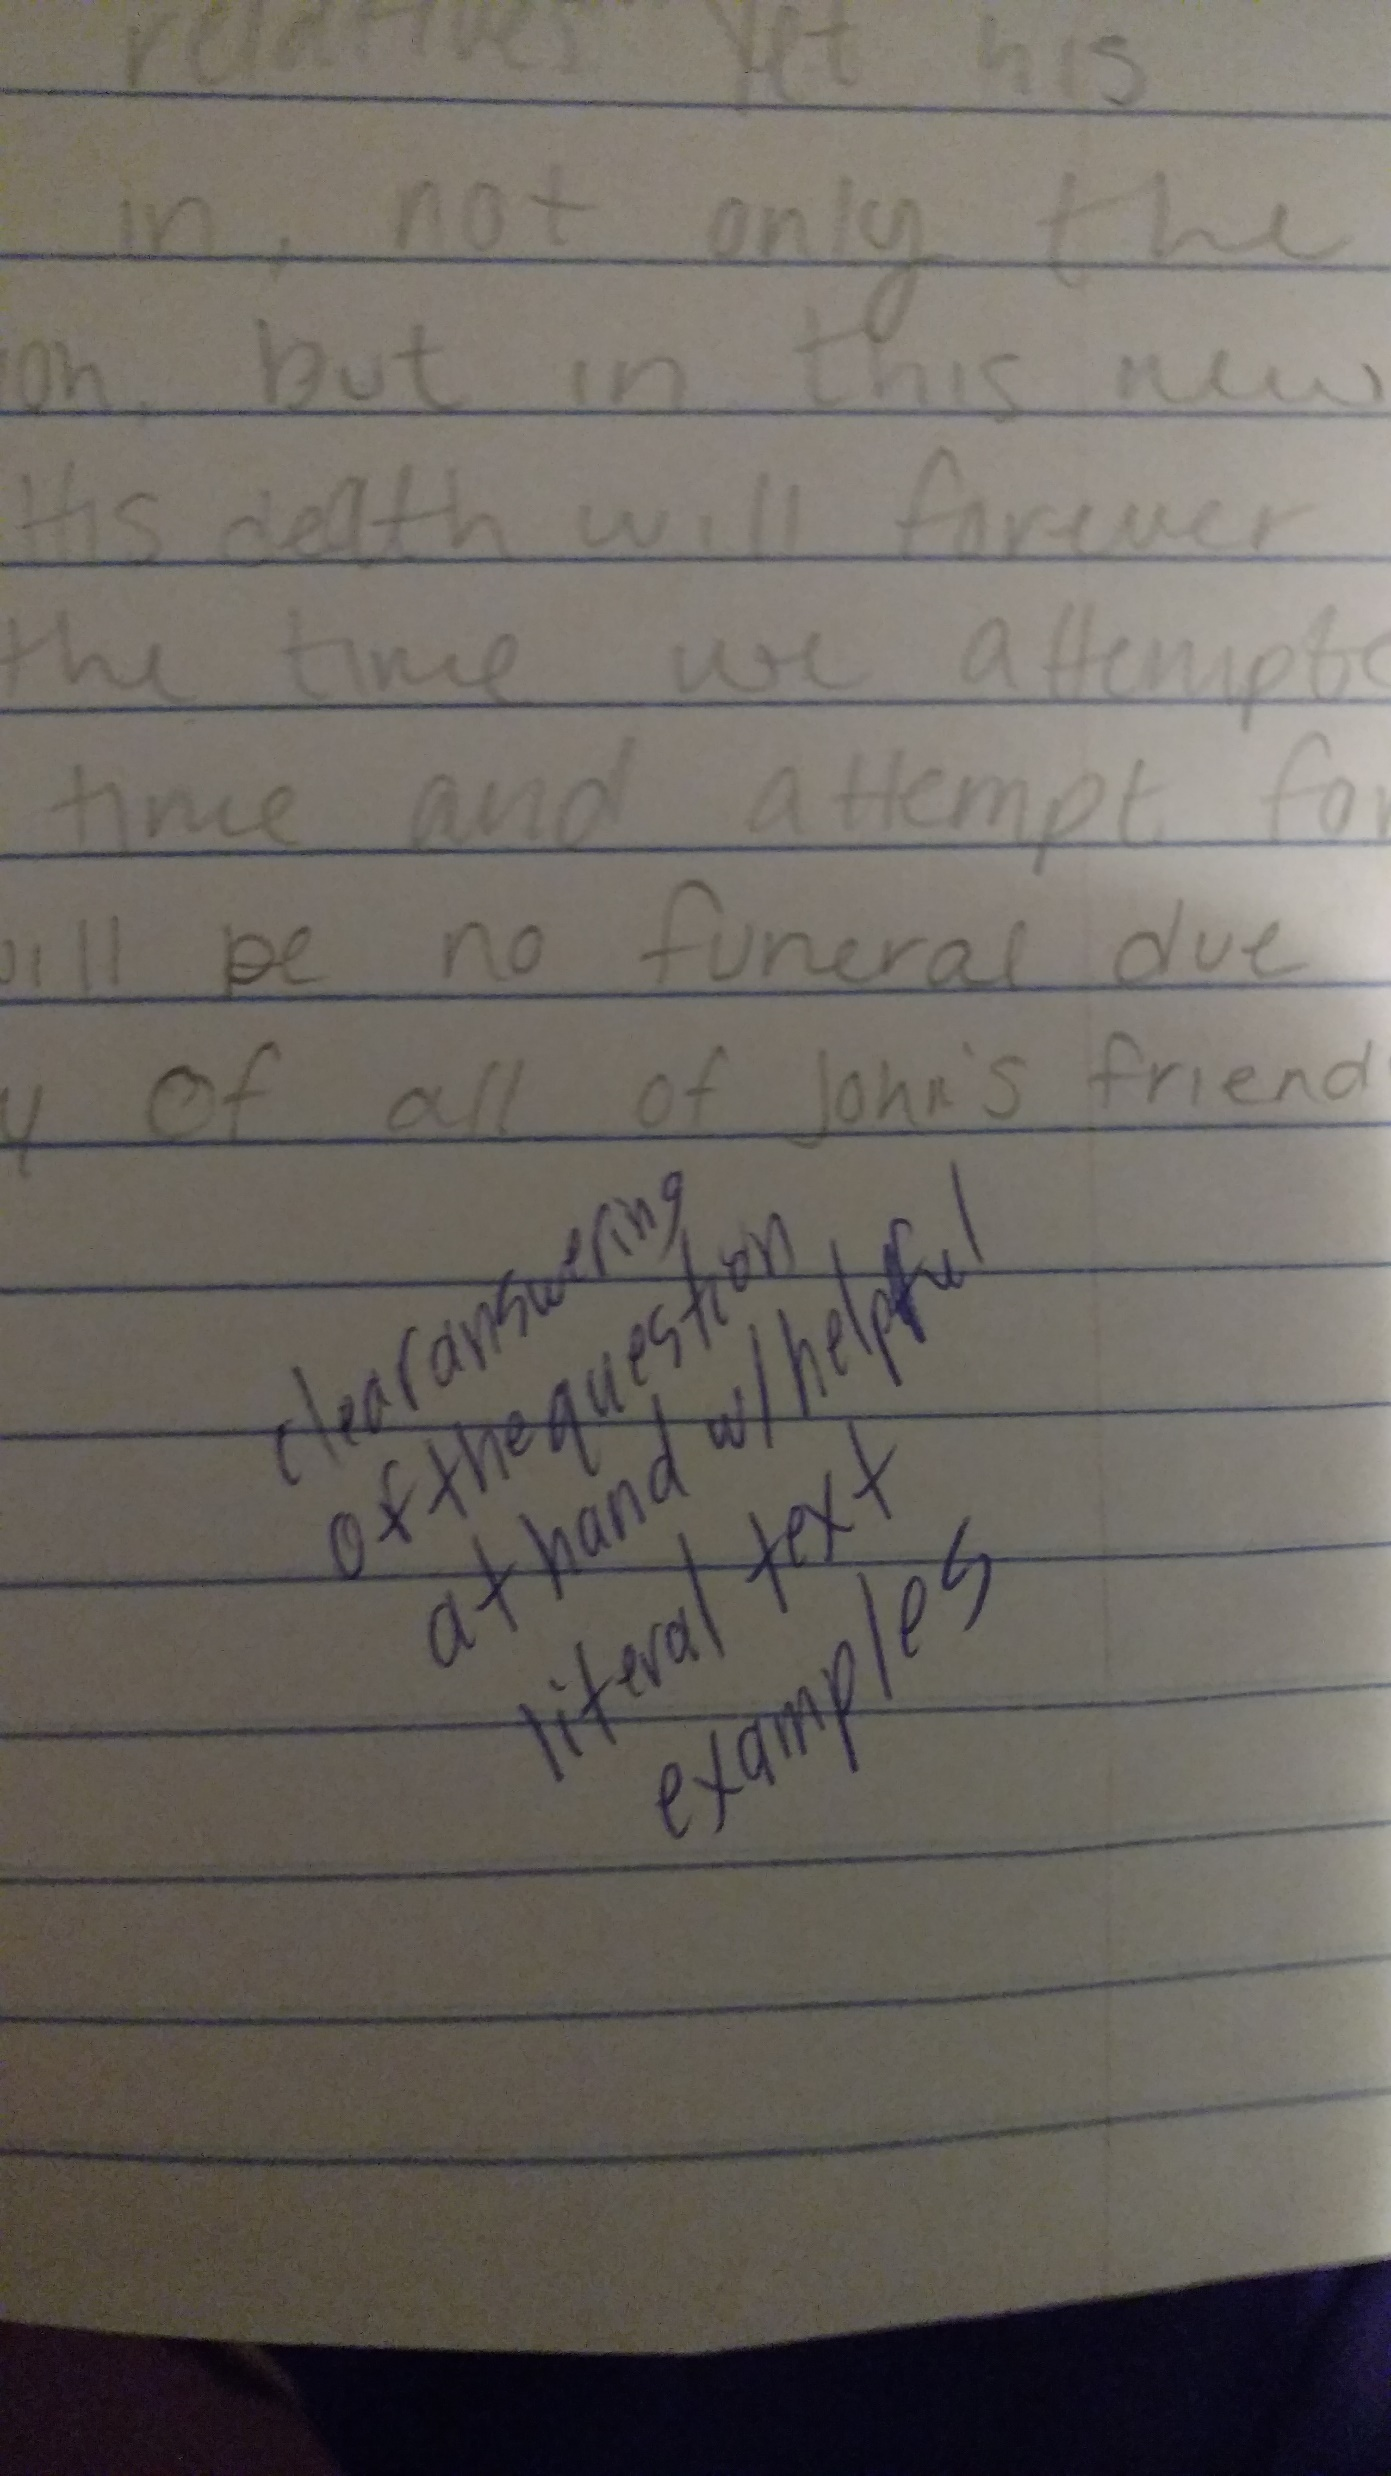 relatives yet his
in, not only the
on, but in this new
His death will forever
the time we attempte
time and attempt for
will be no funeral due
y of all of John's friend
clear answering
of the question
at hand w/ helpful
literal text
examples